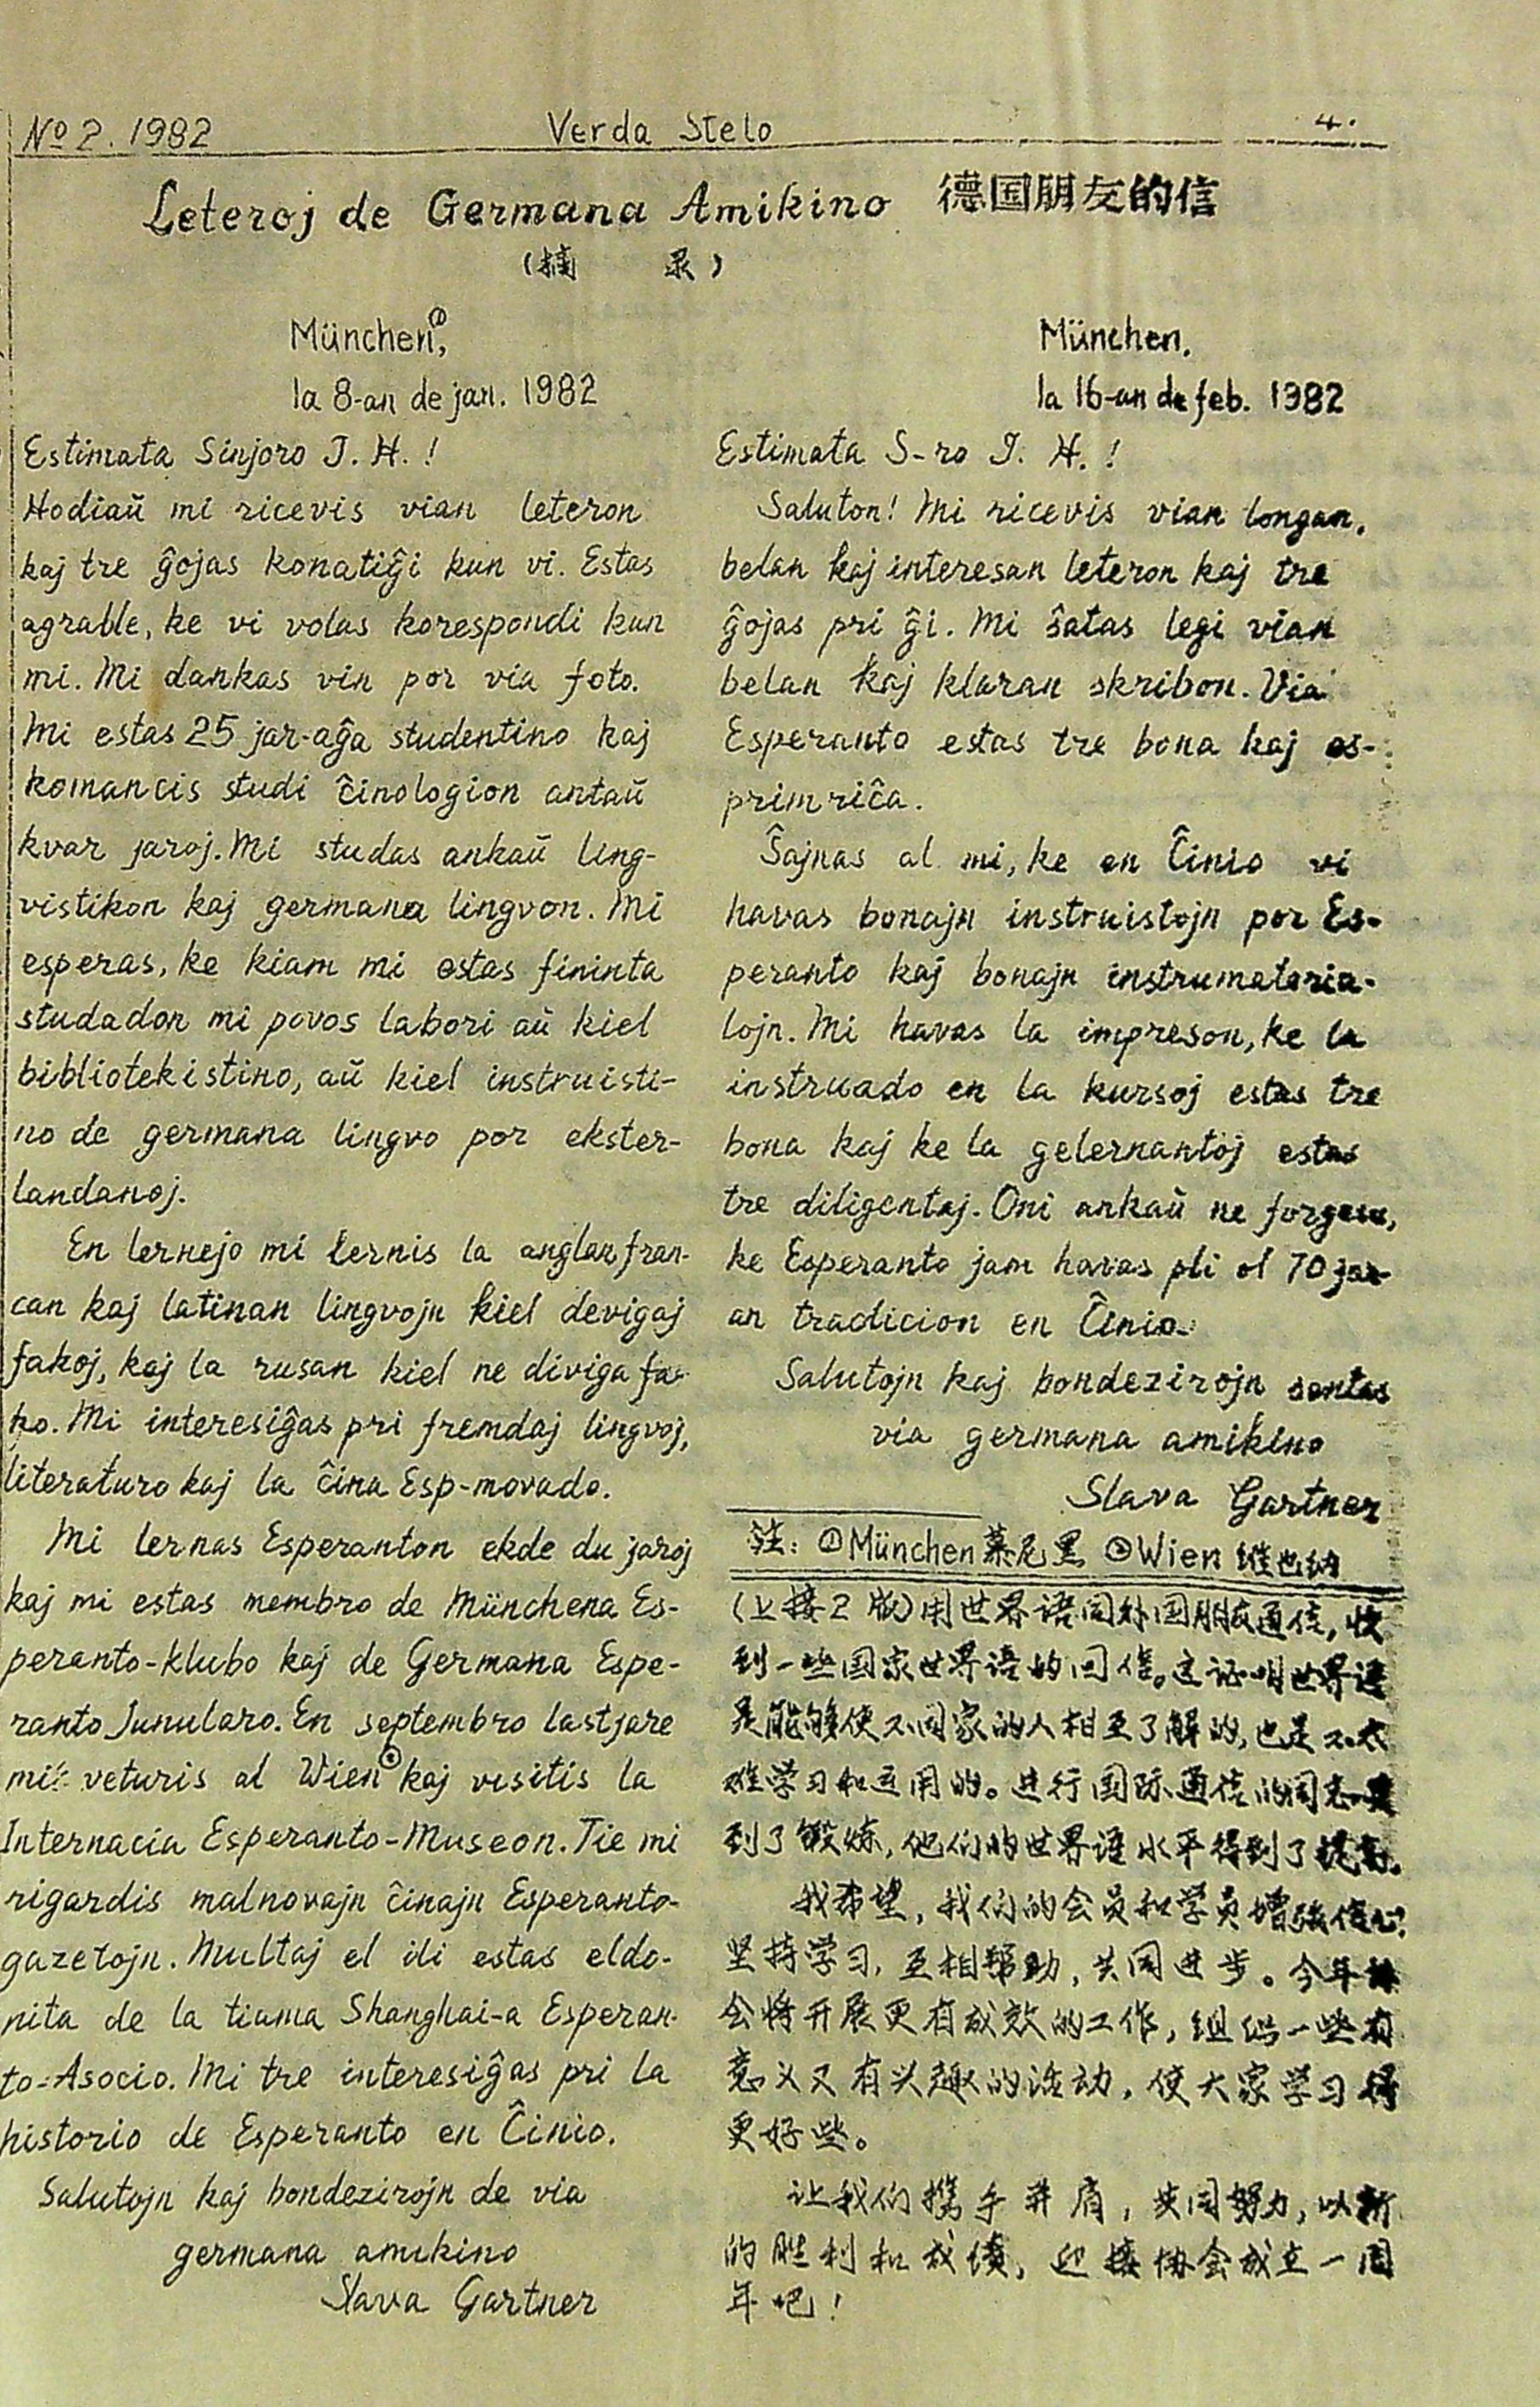 № 2. 1982
Verda Stelo
4.
Leteroj de Germana Amikino 德国朋友的信
(摘 录)
München①,
la 8-an de jan. 1982
Estimata Sinjoro J. H. !
Hodiaŭ mi ricevis vian leteron
kaj tre ĝojas konatiĝi kun vi. Estas
agrable, ke vi volas korespondi kun
mi. Mi dankas vin por via foto.
Mi estas 25 jar-aĝa studentino kaj
komancis studi ĉinologion antaŭ
kvar jaroj. Mi studas ankaŭ ling-
vistikon kaj germana lingvon. Mi
esperas, ke kiam mi estas fininta
studadon mi povos labori aŭ kiel
bibliotekistino, aŭ kiel instruisti-
no de germana lingvo por ekster-
landanoj.
En lernejo mi lernis la anglan fran-
can kaj latinan lingvojn kiel devigaj
fakoj, kaj la rusan kiel ne diviga fa-
ko. Mi interesiĝas pri fremdaj lingvoj,
literaturo kaj la ĉina Esp-movado.
Mi lernas Esperanton ekde du jaroj
kaj mi estas membro de Münchena Es-
peranto-klubo kaj de Germana Espe-
ranto Junularo. En septembro lastjare
mi veturis al Wien② kaj visitis la
Internacia Esperanto-Museon. Tie mi
rigardis malnovajn ĉinajn Esperanto-
gazetojn. Multaj el ili estas eldo-
nita de la tiama Shanghai-a Esperan-
to-Asocio. Mi tre interesiĝas pri la
historio de Esperanto en Ĉinio.
Salutojn kaj bondezirojn de via
germana amikino
Slava Gartner
München.
la 16-an de feb. 1982
Estimata S-ro J. H. !
Saluton! Mi ricevis vian longan,
belan kaj interesan leteron kaj tre
ĝojas pri ĝi. Mi ŝatas legi vian
belan kaj klaran skribon. Via
Esperanto estas tre bona kaj es-
primriĉa.
Ŝajnas al mi, ke en Ĉinio vi
havas bonajn instruistojn por Es-
peranto kaj bonajn instrumateria-
lojn. Mi havas la impreson, ke la
instruado en la kursoj estas tre
bona kaj ke la gelernantoj estas
tre diligentaj. Oni ankaŭ ne forgesu,
ke Esperanto jam havas pli ol 70 jar-
an tradicion en Ĉinio.
Salutojn kaj bondezirojn sentas
via germana amikino
Slava Gartner
注: ①München慕尼黑 ②Wien 维也纳
(上接2版)用世界语同外国朋友通信, 收
到一些国家世界语的回信。这证明世界语
是能够使不同家的人相互了解的, 也是不太
难学习和运用的。进行国际通信的同志
到了锻炼, 他们的世界语水平得到了提高。
我希望, 我们的会员和学员增强信心,
坚持学习, 互相帮助, 共同进步。今年协
会将开展更有成效的工作, 组织一些有
意义又有兴趣的活动, 使大家学习得
更好些。
让我们携手并肩, 共同努力, 以新
的胜利和成绩, 迎接协会成立一周
年吧!